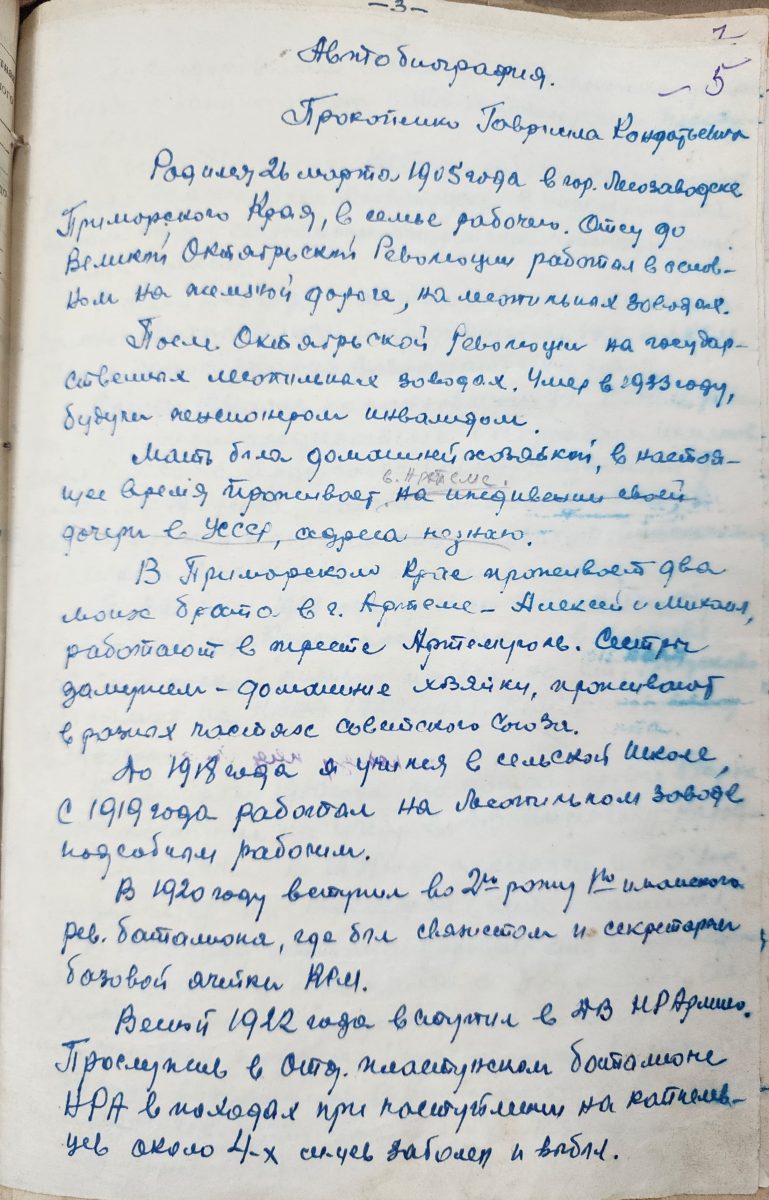 -3-
7
5
Автобиография.
Прокопенко Гаврила Кондратьевич
Родился 26 марта 1905 года в гор. Лесозаводске
Приморского Края, в семье рабочего. Отец до
Великой Октябрьской Революции работал в основ-
ном на железной дороге, на лесопильных заводах.
После Октябрьской Революции на государ-
ственных лесопильных заводах. Умер в 1933 году,
будучи пенсионером инвалидом.
Мать была домашней хозяйкой, в настоя-
г. Артеме.
щее время проживает на иждивении своей
дочери в УССР, адреса незнаю.
В Приморском Крае проживает два
моих брата в г. Артеме - Алексей и Михаил,
работают в тресте Артемуголь. Сестры
замужем - домашние хозяйки, проживают
в разных частях Советского Союза.
До 1918 года я учился в сельской школе,
С 1919 года работал на Лесопильном заводе
подсобным рабочим.
В 1920 году вступил во 2ую роту 1го иманского
рев. баталиона, где был связистом и секретарем
базовой ячейки
Весной 1922 года вступил в ДВ НРАрмию.
Прослужив в отд. пластунском баталионе
НРА в походах при наступлении на каппелев-
цев около 4-х м-цев заболел и выбыл.